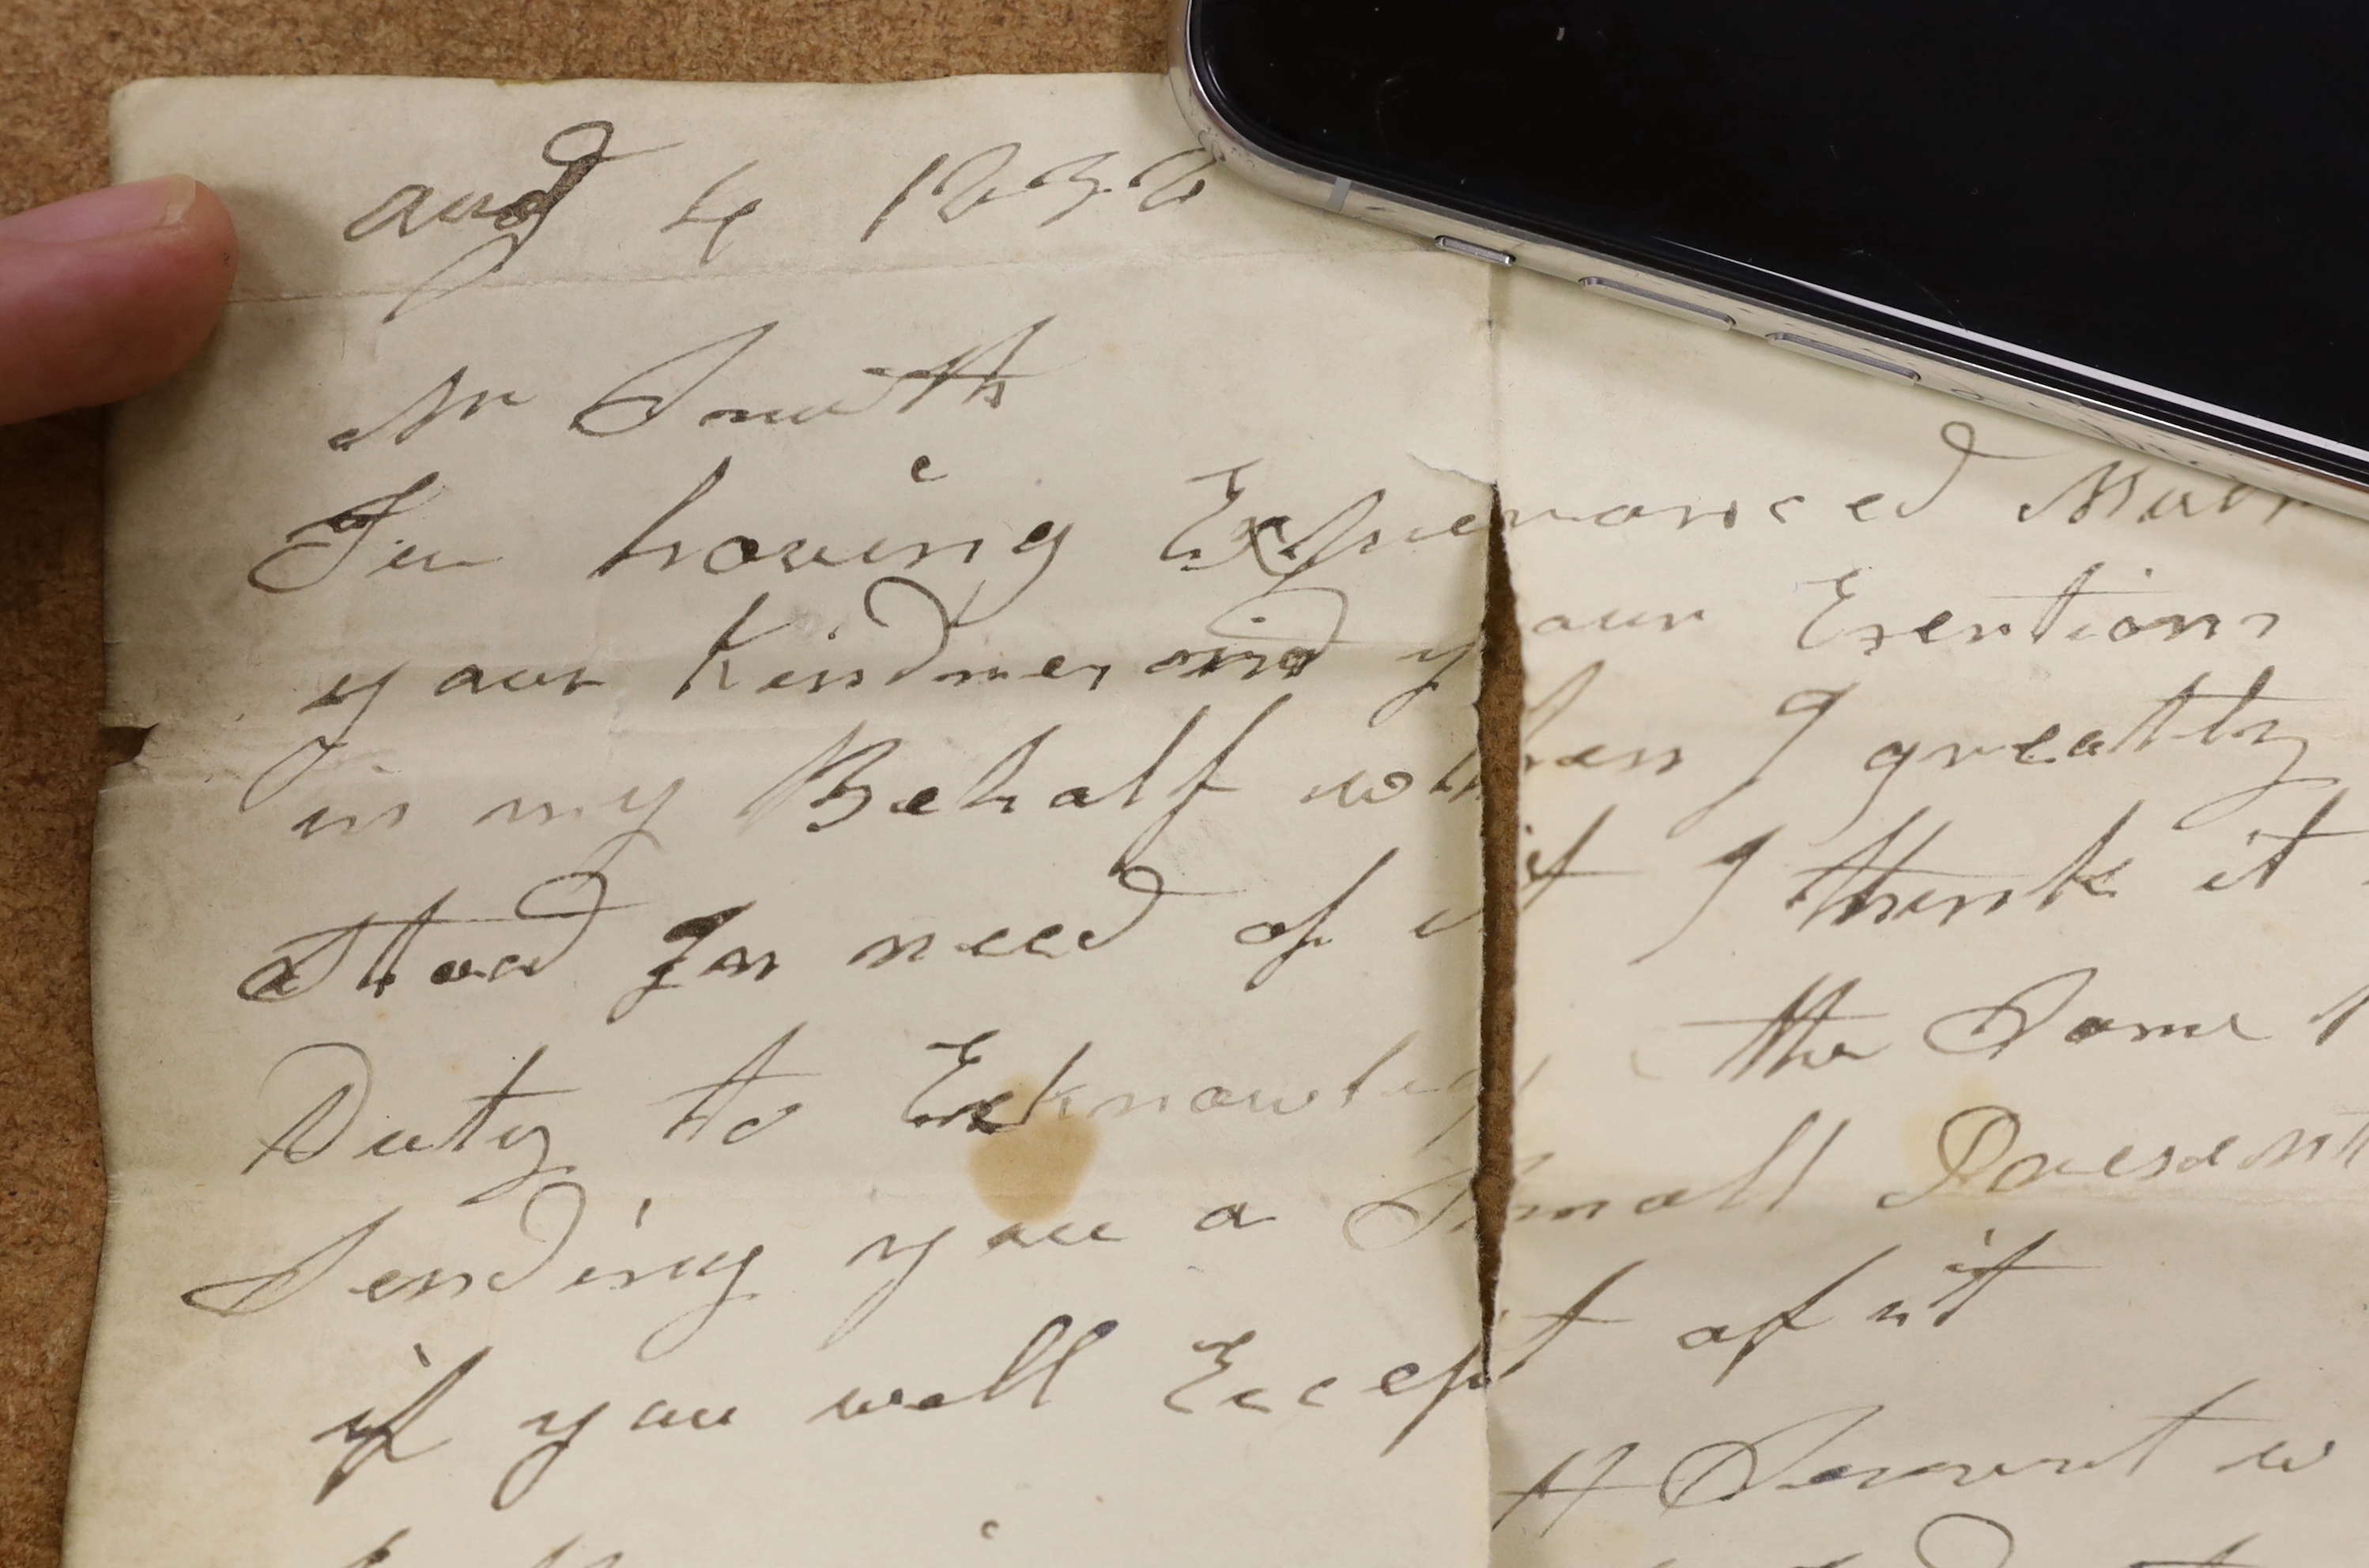 aug 4 1838
Mr Smith
Sir having Experianced Much
your Kindness and your Exertions
in my Behalf when I greatly
Stood In need of it I think it
Duty to Eeknowleg the Same
Sending you a Small Present
if you will Eccept of it
H Servant w